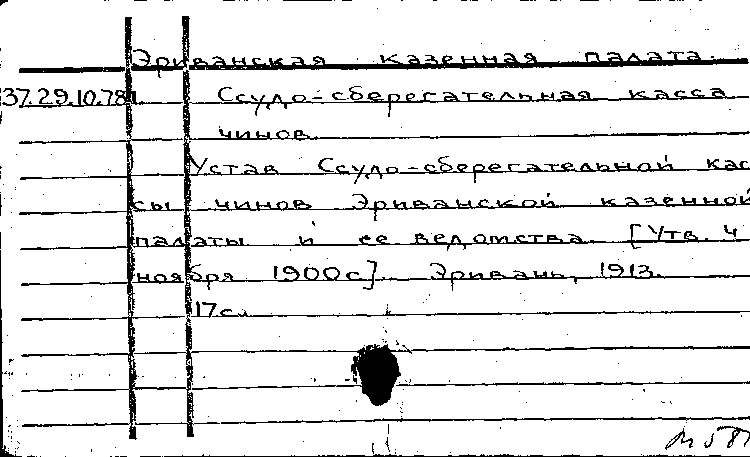 Эриванская казенная палата.
37.29.10.781. Ссудо-сберегательная касса
чинов.
Устав Ссудо-сберегательной кас
сы чинов Эриванской казенной
палаты и ее ведомства. [Утв. 4
ноября 1900г]. Эривань, 1913.
17с.